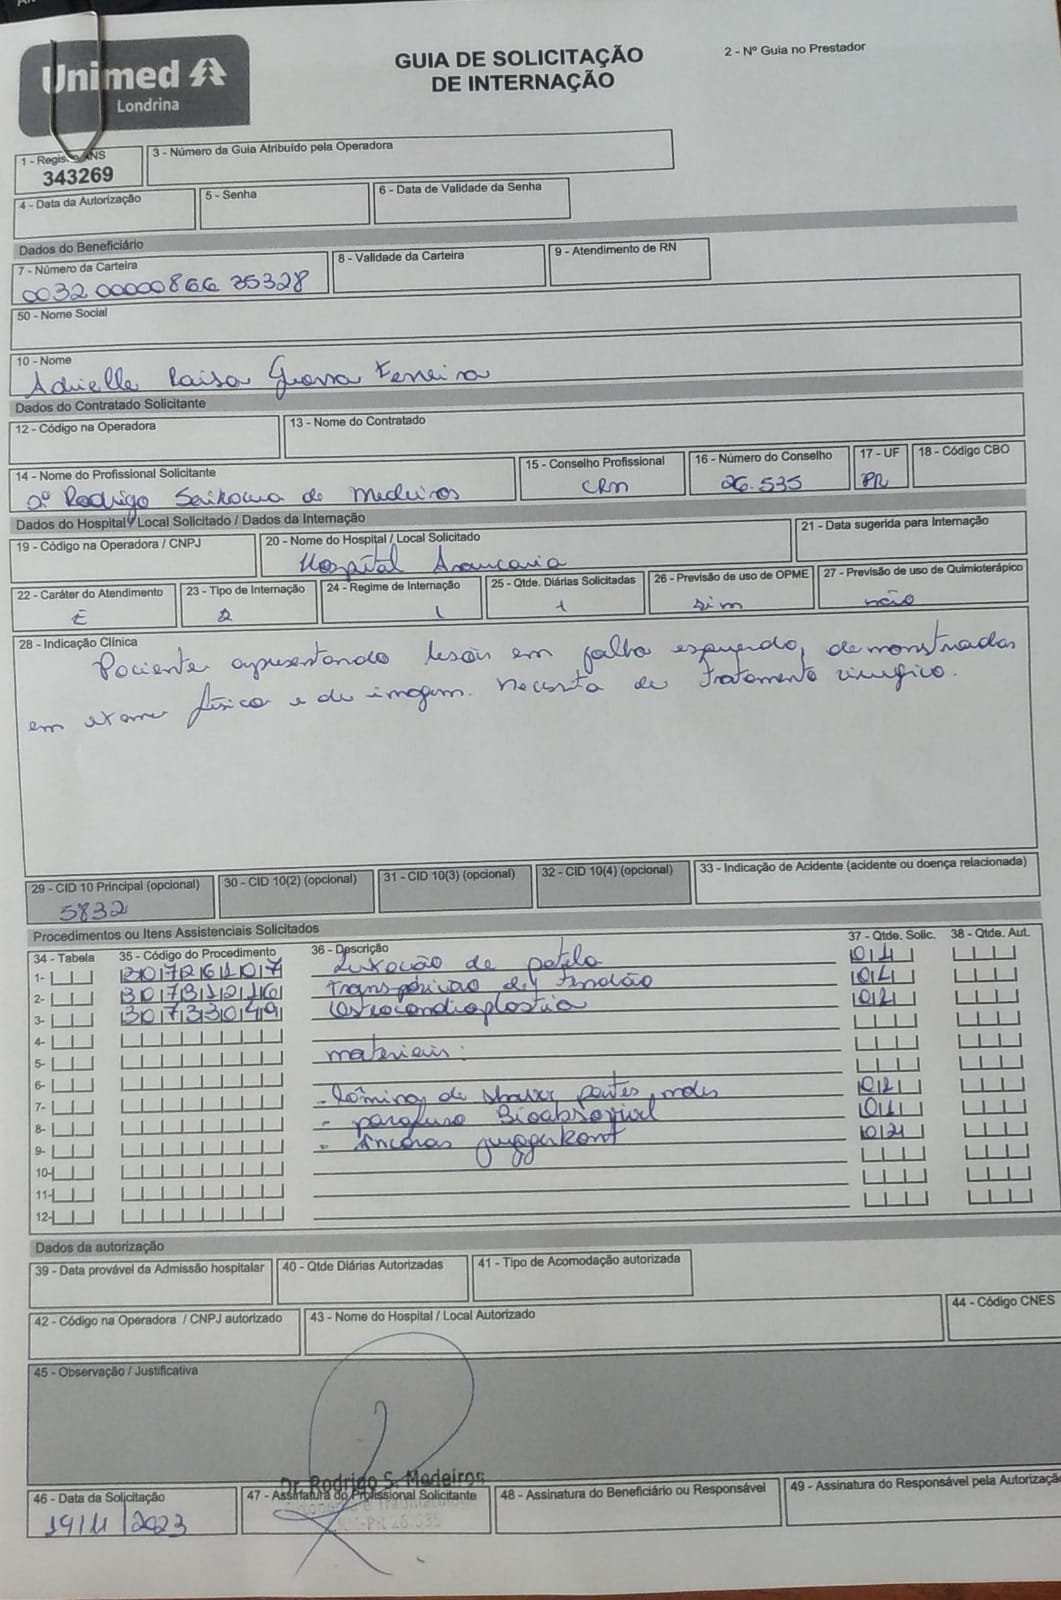 Unimed
Londrina
GUIA DE SOLICITAÇÃO
DE INTERNAÇÃO
2 - Nº Guia no Prestador
1 - Regis ANS
343269
3 - Número da Guia Atribuído pela Operadora
4 - Data da Autorização
5 - Senha
6 - Data de Validade da Senha
Dados do Beneficiário
7 - Número da Carteira
0032 00000866 35328
8 - Validade da Carteira
9 - Atendimento de RN
50 - Nome Social
10 - Nome
Adrielle Raisa Guerra Ferreira
Dados do Contratado Solicitante
12 - Código na Operadora
13 - Nome do Contratado
14 - Nome do Profissional Solicitante
Dr. Rodrigo Seikowa de Medeiros
15 - Conselho Profissional
CRM
16 - Número do Conselho
26.535
17 - UF
PR
18 - Código CBO
Dados do Hospital / Local Solicitado / Dados da Internação
19 - Código na Operadora / CNPJ
20 - Nome do Hospital / Local Solicitado
Hospital Araucaria
21 - Data sugerida para Internação
22 - Caráter do Atendimento
E
23 - Tipo de Internação
2
24 - Regime de Internação
1
25 - Qtde. Diárias Solicitadas
1
26 - Previsão de uso de OPME
sim
27 - Previsão de uso de Quimioterápico
não
28 - Indicação Clínica
Paciente apresentando lesão em joelho esquerdo, demonstradas
em exame físico e de imagem. Necessita de tratamento cirurgico.
29 - CID 10 Principal (opcional)
S832
30 - CID 10(2) (opcional)
31 - CID 10(3) (opcional)
32 - CID 10(4) (opcional)
33 - Indicação de Acidente (acidente ou doença relacionada)
Procedimentos ou Itens Assistenciais Solicitados
34 - Tabela
35 - Código do Procedimento
36 - Descrição
37 - Qtde. Solic.
38 - Qtde. Aut.
1- 30726107 Luxação de patela 01
2- 30731216 Transposição de 1 tendão 01
3- 30733049 Osteocondroplastia 01
4-
5- materiais:
6-
7- - lâmina de shaver partes moles 01
8- - parafuso Bioabsorvivel 01
9- - Âncoras juggerknot 02
10-
11-
12-
Dados da autorização
39 - Data provável da Admissão hospitalar
40 - Qtde Diárias Autorizadas
41 - Tipo de Acomodação autorizada
42 - Código na Operadora / CNPJ autorizado
43 - Nome do Hospital / Local Autorizado
44 - Código CNES
45 - Observação / Justificativa
Dr. Rodrigo S. Medeiros
46 - Data da Solicitação
14/11/2023
47 - Assinatura do Profissional Solicitante
CRM-PR 26.535
48 - Assinatura do Beneficiário ou Responsável
49 - Assinatura do Responsável pela Autorização